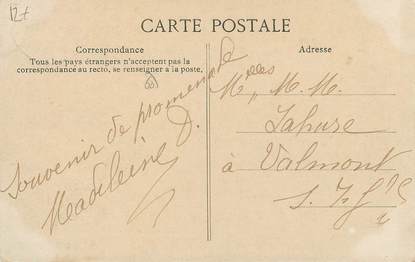 12+
CARTE POSTALE
Correspondance
Tous les pays étrangers n'acceptent pas la
correspondance au recto, se renseigner à la poste.
Souvenir de promenade
Madeleine D.
Adresse
Melles M. M.
Lahure
à Valmont